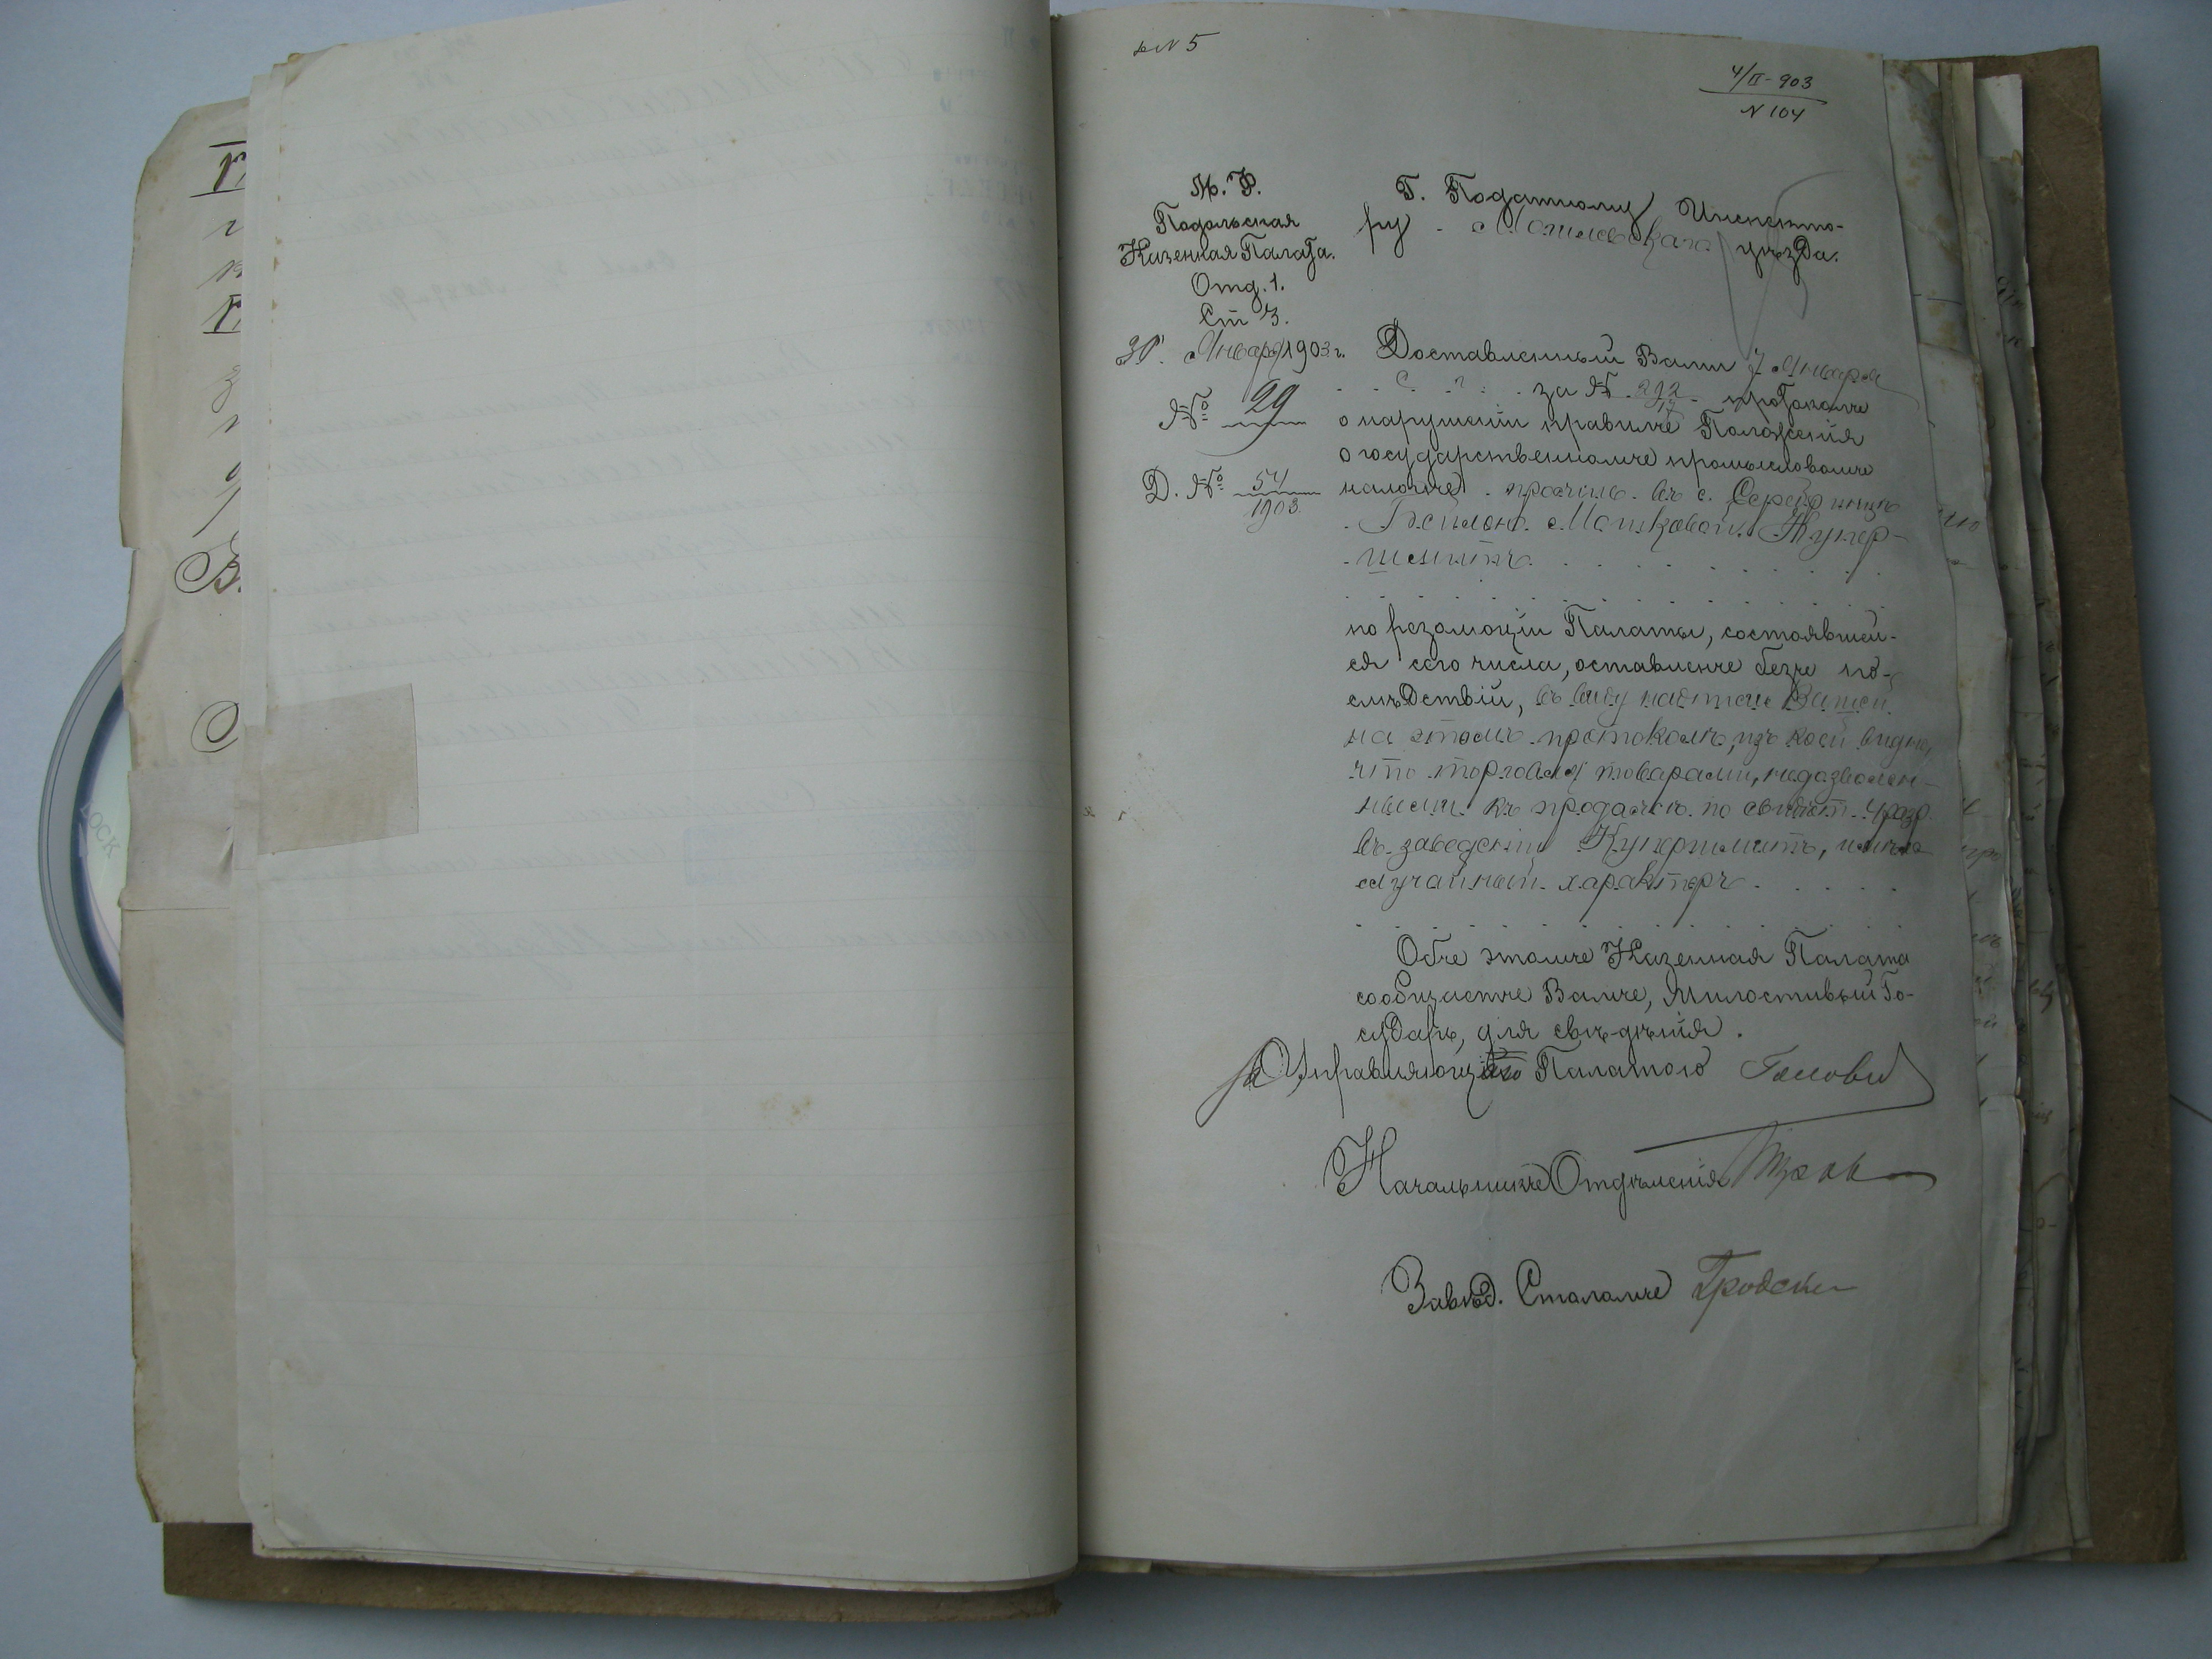 к N 5
4/II-903
N 104
М. Ф.
Подольская
Казенная Палата.
Отд. 1.
Ст 3.
31 Января 1903 г.
№ 29
Д. № 54
1903.
Г. Податному Инспекто-
ру Могилевскаго уѣзда.
Доставленный Вами 7 Января
с. г. за № 292 протоколъ
о нарушеніи правилъ Положенія
о государственномъ промысловомъ
налогѣ противъ въ с.
Бейлою Мошковою Купер-
шмитъ
по резолюціи Палаты, состоявшей-
ся сего числа, оставленъ безъ по-
слѣдствій, въ виду надписи Вашей
на этомъ протоколѣ, изъ коей видно,
что торговля товарами, недозволен-
ными къ продажѣ по свидѣт. 4 разр.
въ заведеніи Купершмитъ, имѣла
случайный характеръ.
Объ этомъ Казенная Палата
сообщаетъ Вамъ, Милостивый Го-
сударь, для свѣдѣнія.
за Управляющаго Палатою
Начальникъ Отдѣленія
Завѣд. Столомъ Гродски